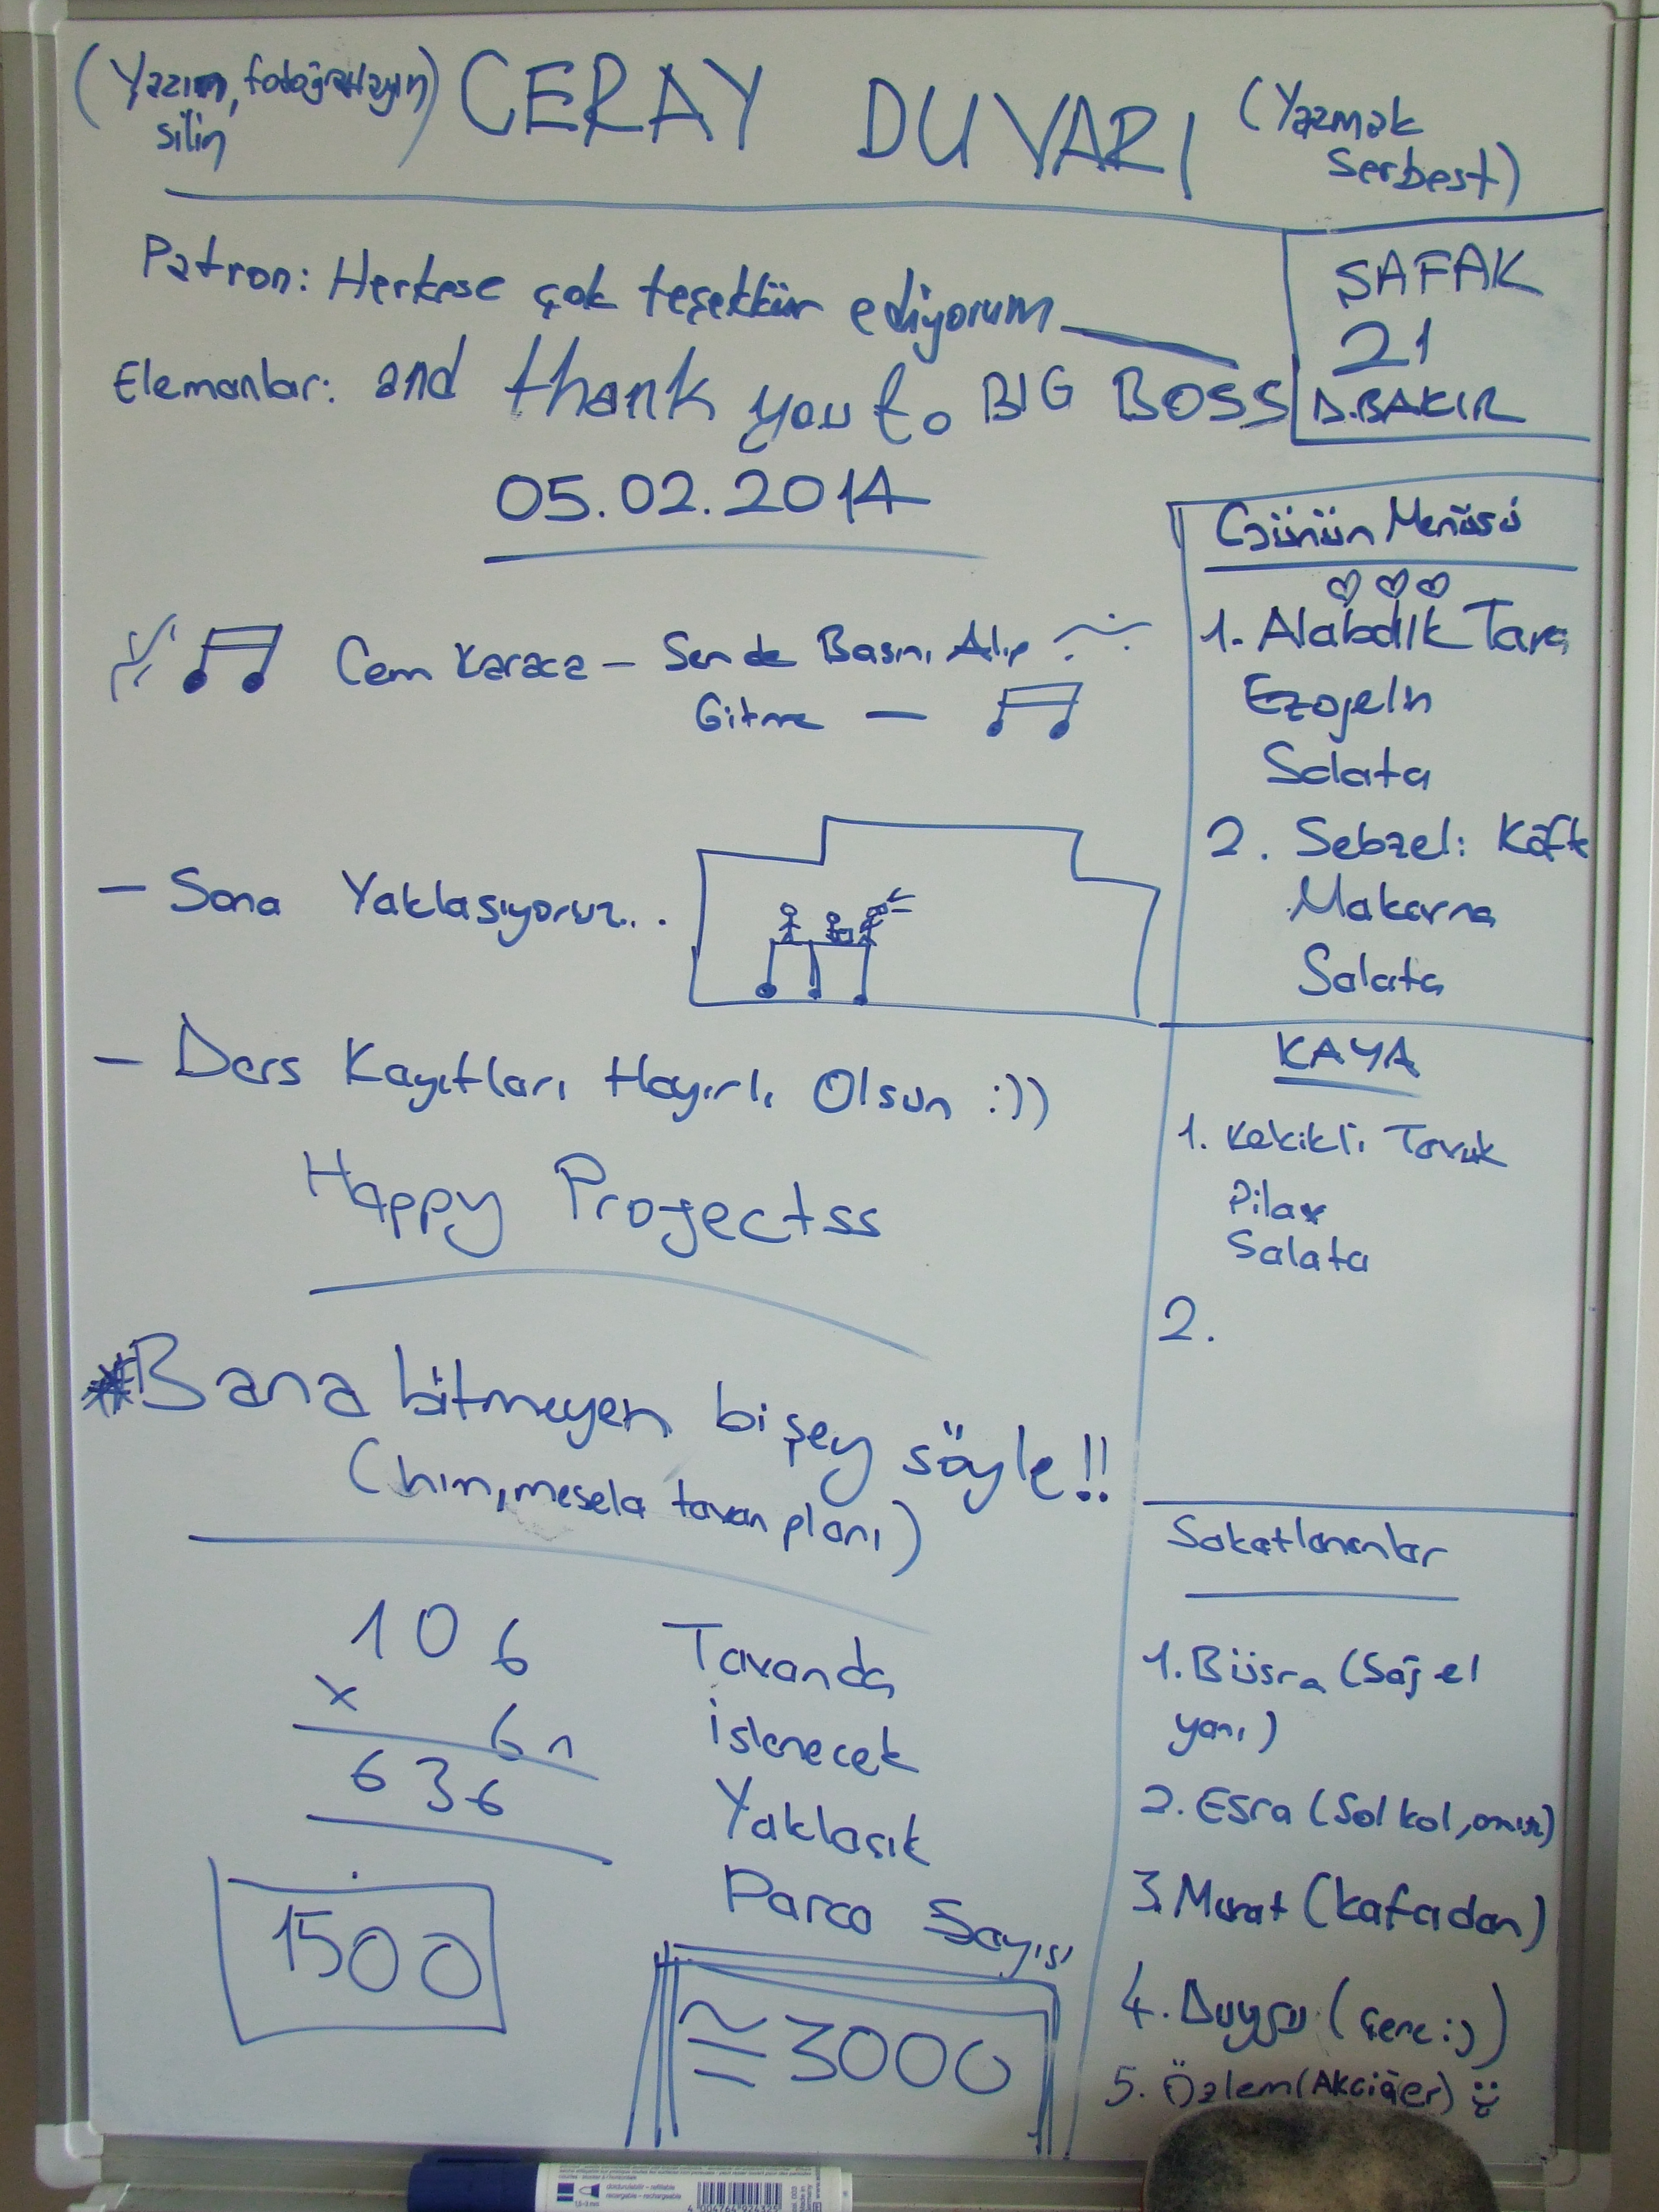 (Yazın, fotoğraflayın
silin)
CERAY DUVARI
(Yazmak
serbest)
Patron: Herkese çok teşekkür ediyorum
Elemanlar: and thank you to BIG BOSS
05.02.2014
ŞAFAK
21
D.BAKIR
Cem Karaca – Sen de Başını Alıp
Gitme –
– Sona Yaklaşıyoruz...
– Ders Kayıtları Hayırlı Olsun :))
Happy Projectss
*Bana bitmeyen bişey söyle!!
(hım, mesela tavan planı)
106
x
6
636
1500
Tavanda
işlenecek
Yaklaşık
Parca Sayısı
≅ 3000
Günün Menüsü
1. Alabalık Tava
Ezogelin
Salata
2. Sebzeli Köfte
Makarna
Salata
KAYA
1. Kekikli Tavuk
Pilav
Salata
2.
Sakatlananlar
1. Büşra (Sağ el
yanı)
2. Esra (Sol kol, omuz)
3. Murat (kafadan)
4. Duygu (çene :))
5. Özlem (Akciğer)